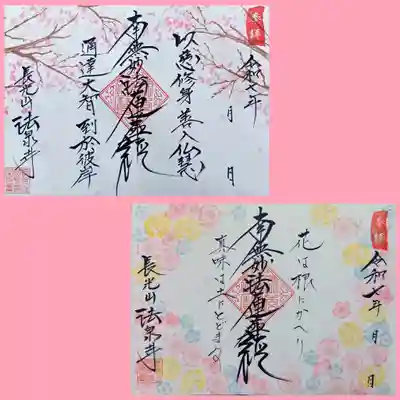 奉拝
令和七年
月
日
以慈修身善入仏慧
南無妙法蓮華経
通達大智到於彼岸
長光山
法泉寺
奉拝
令和七年
月
日
花は根にかへり
南無妙法蓮華経
真味は土にとどまる
長光山
法泉寺